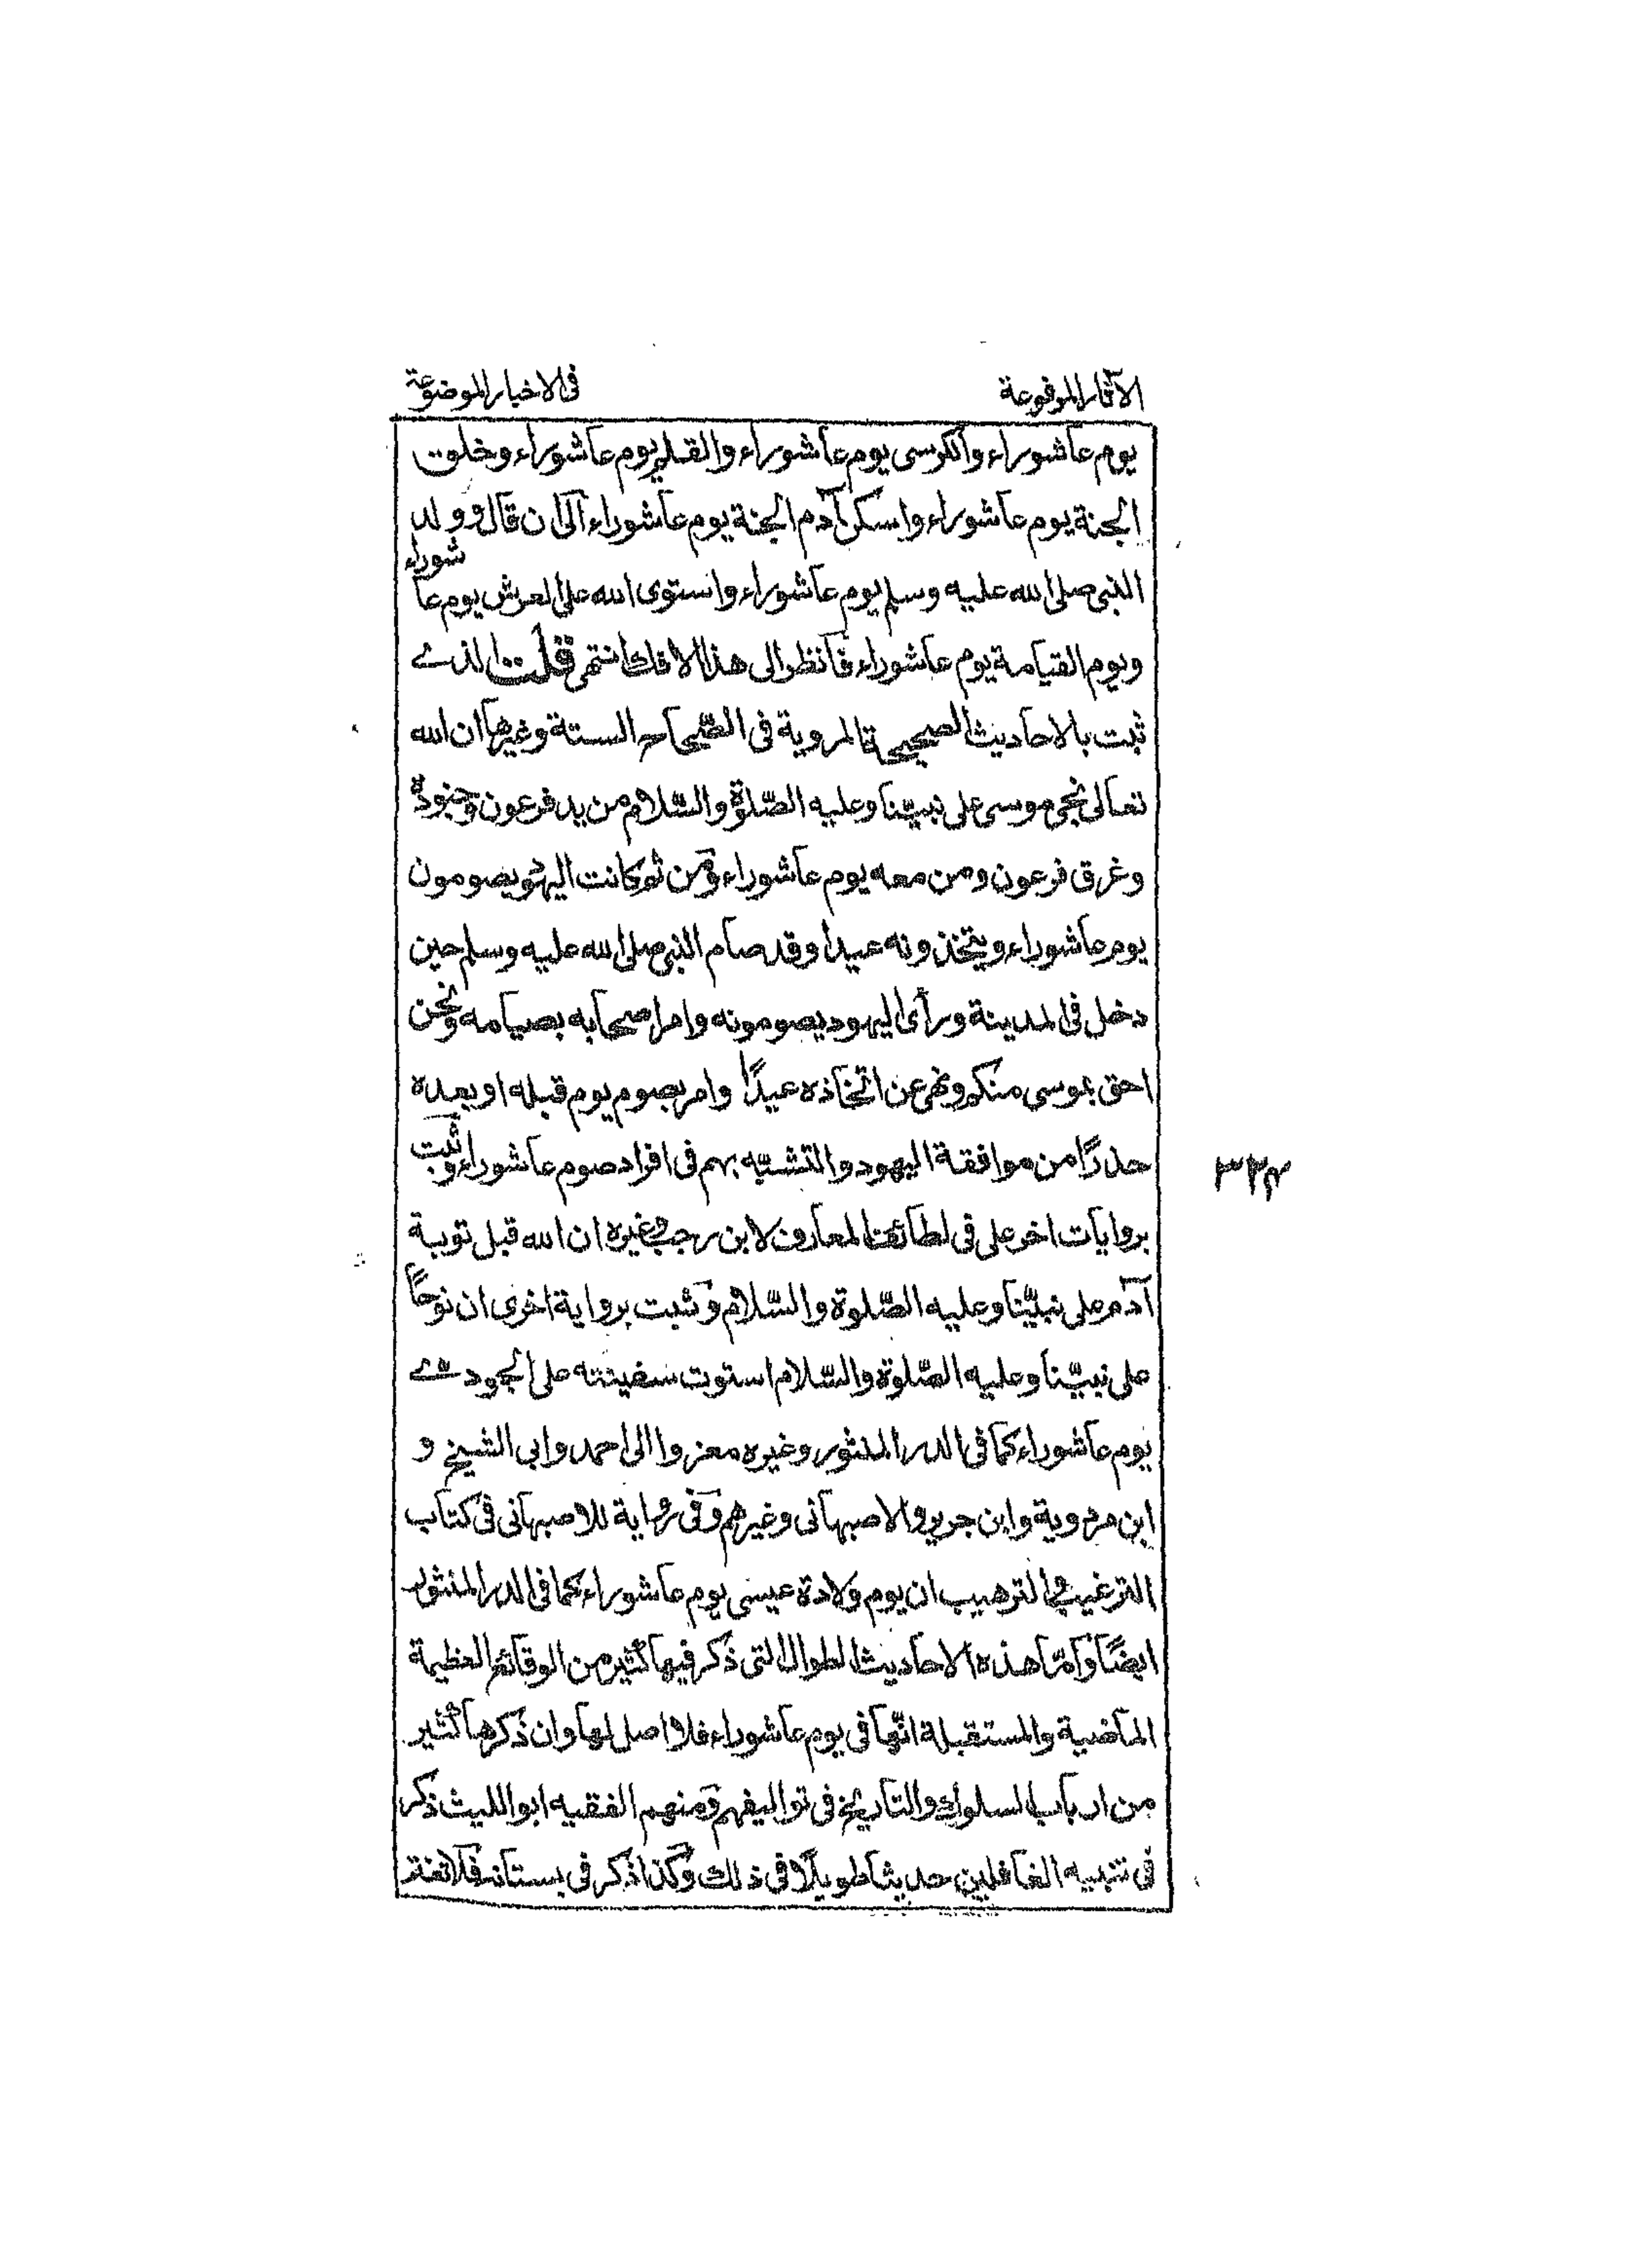 الآثار المرفوعة
فى الاخبار الموضوعة
يوم عاشوراء والكرسى يوم عاشوراء والقلم يوم عاشوراء وخلقت
الجنة يوم عاشوراء واسكن آدم الجنة يوم عاشوراء الى ان قال وولد
النبى صلى الله عليه وسلم يوم عاشوراء واستوى الله على العرش يوم عاشوراء
ويوم القيامة يوم عاشوراء فانظر الى هذا الافك انتهى قلت الذى
ثبت بالاحاديث الصحيحة المروية فى الصّحاح الستة وغيرها ان الله
تعالى نجى موسى على نبيّنا وعليه الصّلوة والسّلام من يد فرعون وجنوده
وغرق فرعون ومن معه يوم عاشوراء ومن ثم كانت اليهود يصومون
يوم عاشوراء ويتخذونه عيدا وقد صام النبى صلى الله عليه وسلم حين
دخل فى المدينة ورأى اليهود يصومونه وامر اصحابه بصيامه ونحن
احق بموسى منكم ونهى عن اتخاذه عيدًا وامر بصوم يوم قبله او بعده
حذرًا من موافقة اليهود والتشبّه بهم فى افراد صوم عاشوراء وثبت
بروايات اخر على فى لطائف المعارف لابن رجب وغيره ان الله قبل توبة
آدم على نبيّنا وعليه الصّلوة والسّلام وثبت برواية اخرى ان نوحًا
على نبيّنا وعليه الصّلوة والسّلام استوت سفينته على الجودى
يوم عاشوراء كما فى الدر المنثور وغيره معزوا الى احمد وابى الشيخ و
ابن مردوية وابن جرير والاصبهانى وغيرهم وفى رواية للاصبهانى فى كتاب
الترغيب والترهيب ان يوم ولادة عيسى يوم عاشوراء كما فى الدر المنثور
ايضًا وامّا هذه الاحاديث الطوال التى ذكر فيها كثير من الوقائع العظيمة
الماضية والمستقبلة انّها فى يوم عاشوراء فلا اصل لها وان ذكرها كثير
من ارباب السلوك والتاريخ فى تواليفهم ومنهم الفقيه ابو الليث ذكر
فى تنبيه الغافلين حديثا طويلًا فى ذلك وكذا ذكر فى بستانه فلا تغتر